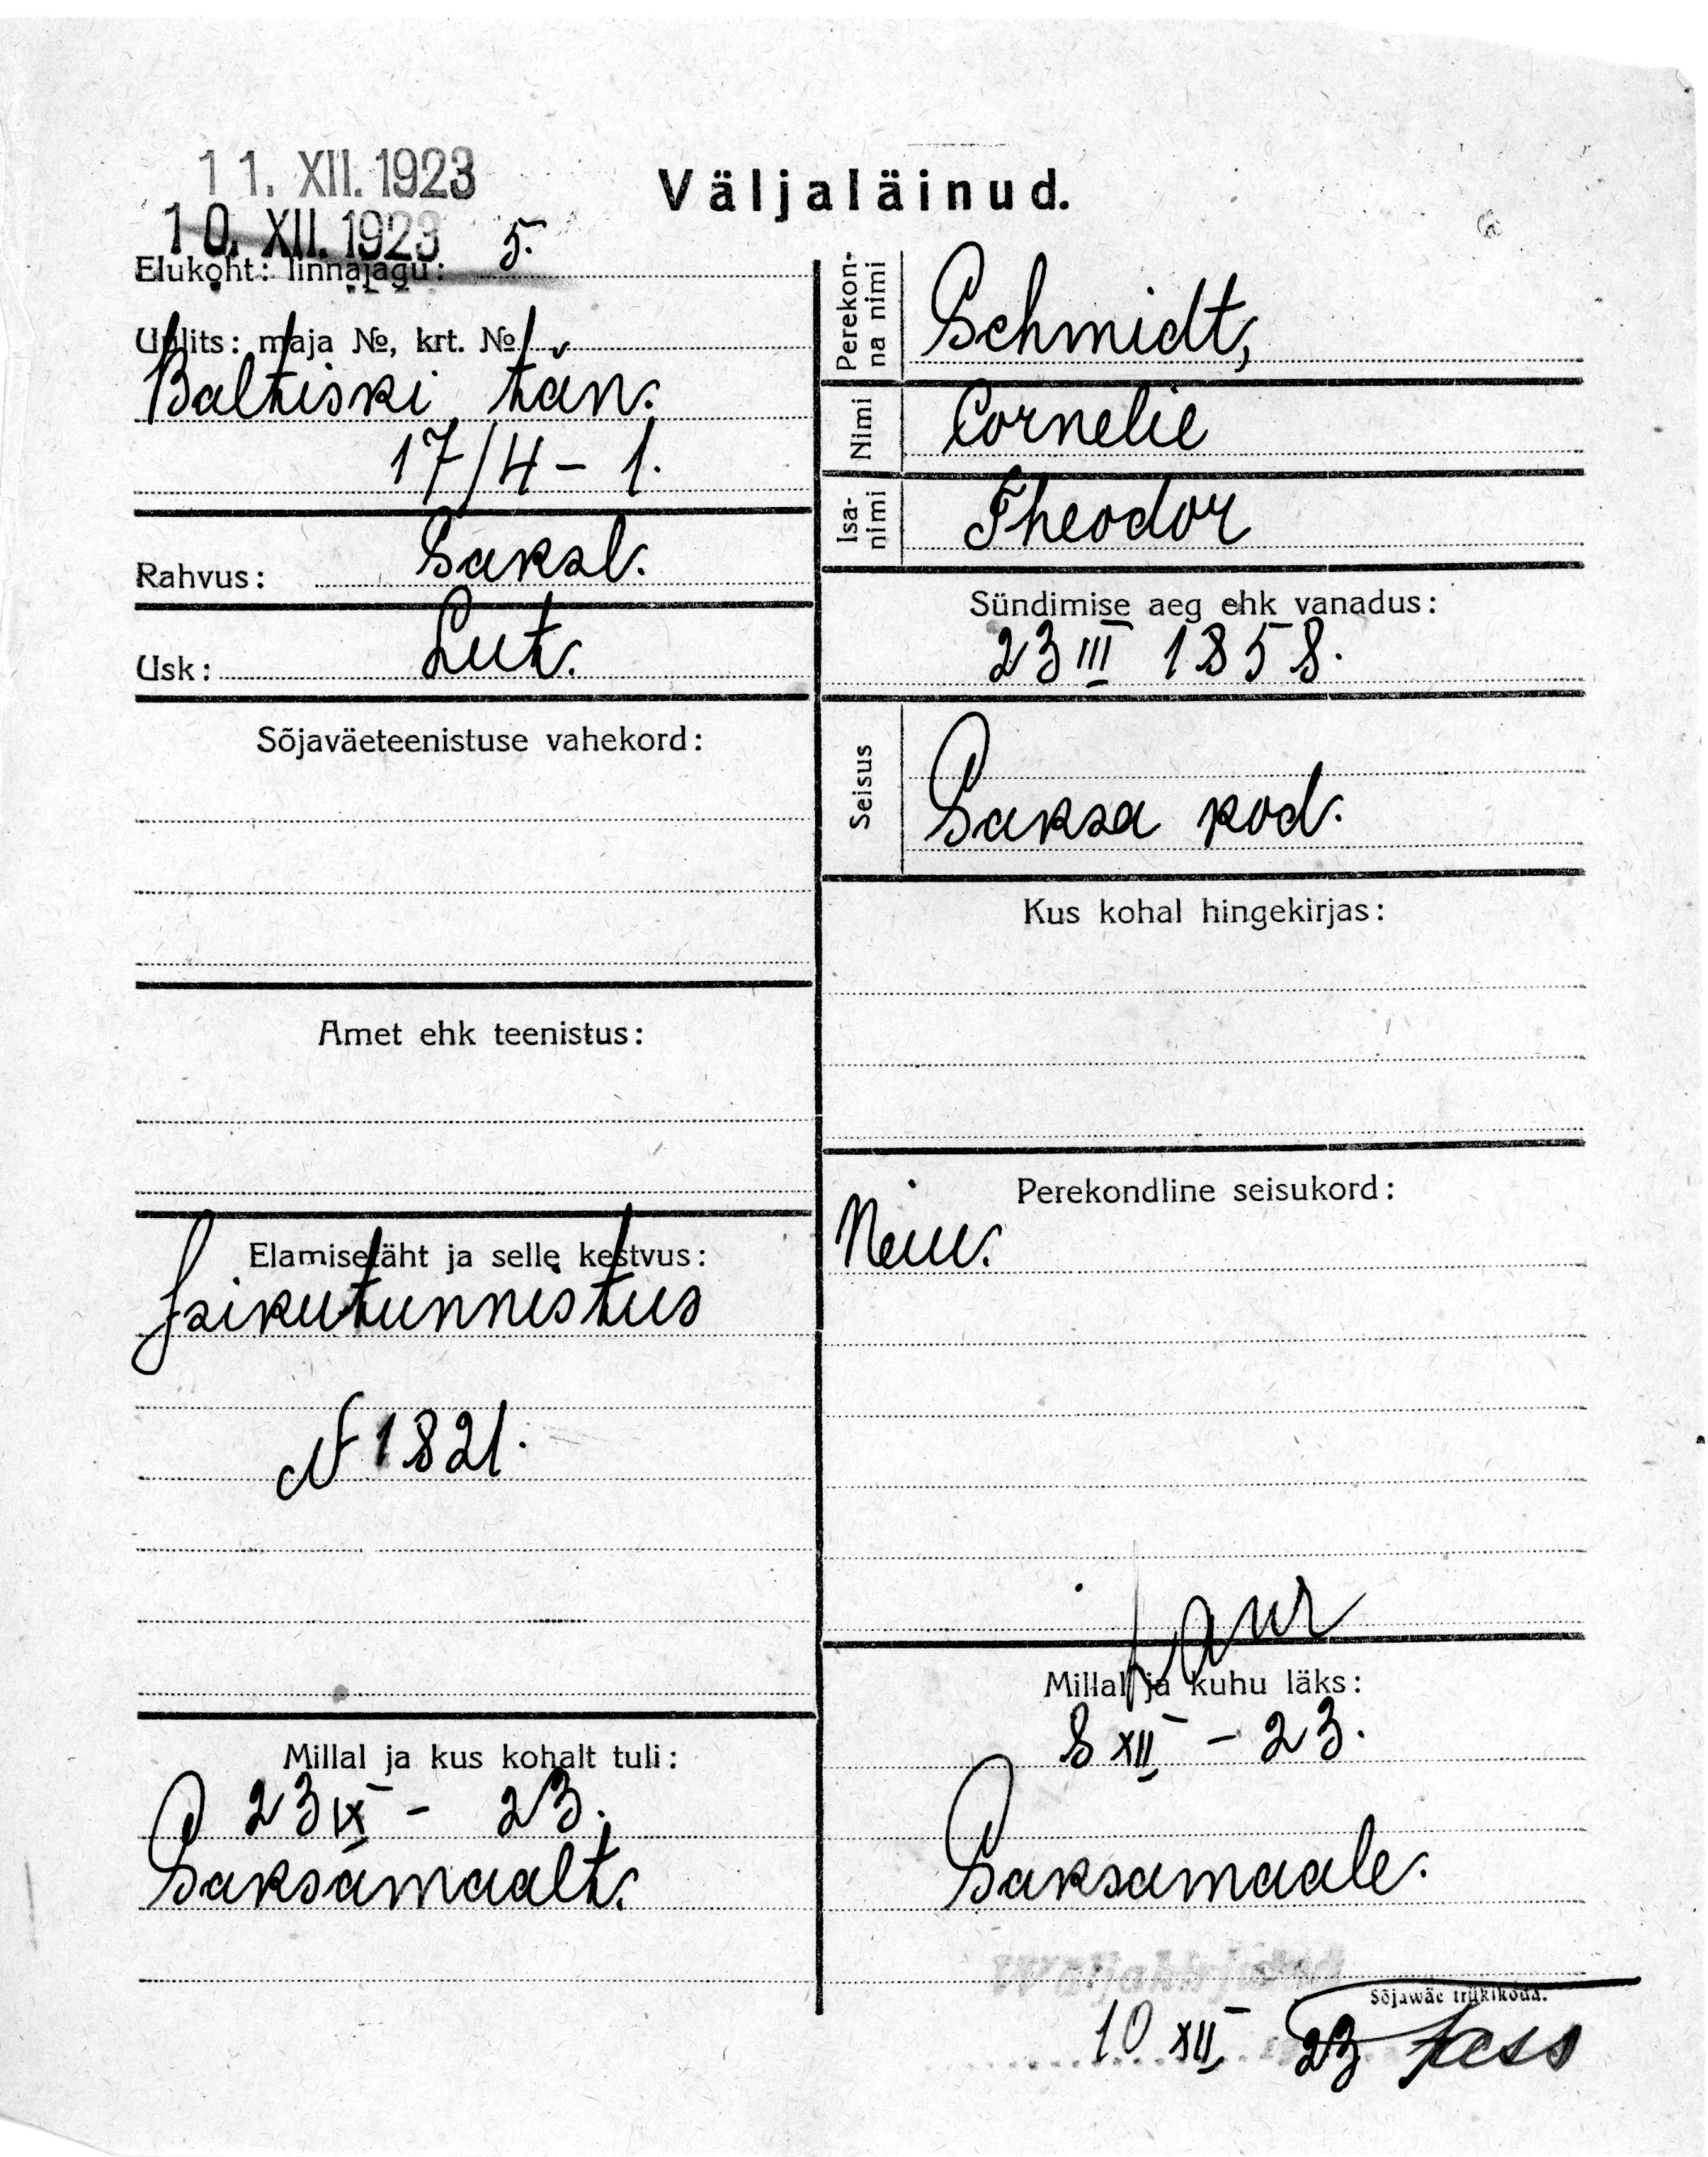 11. XII. 1923
10. XII. 1923
Väljaläinud.
Elukoht: linnajagu: 5.
Uulits: maja №, krt. №
Baltiski tän.
17/4 - 1.
Rahvus: Saksl.
Usk: Lut.
Sõjaväeteenistuse vahekord:
Amet ehk teenistus:
Elamiseläht ja selle kestvus:
Isikutunnistus
N 1821.
Millal ja kus kohalt tuli:
23 IX - 23.
Saksamaalt.
Perekonna nimi Schmidt,
Nimi Cornelie
Isa-nimi Theodor
Sündimise aeg ehk vanadus:
23 III 1858.
Seisus
Saksa kod.
Kus kohal hingekirjas:
Perekondline seisukord:
Neiu.
Millal ja kuhu läks:
8 XII - 23.
Saksamaale.
Sõjawäe trükikoda.
10 XII 23